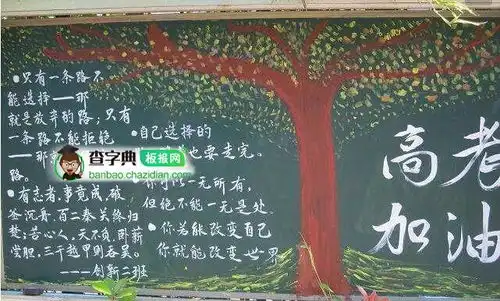 ●只有一条路不
能选择——那
就是放弃的路；只有
一条路不能拒绝
——那
路。
●有志者，事竟成，破
釜沉舟，百二秦关终归
楚；苦心人，天不负，卧薪
尝胆，三千越甲可吞吴。
——创新二班
●自己选择的
也要走完。
可以一无所有，
但绝不能一无是处
●你若能改变自己
你就能改变世界
高老
加油
查字典 板报网
banbao.chazidian.com